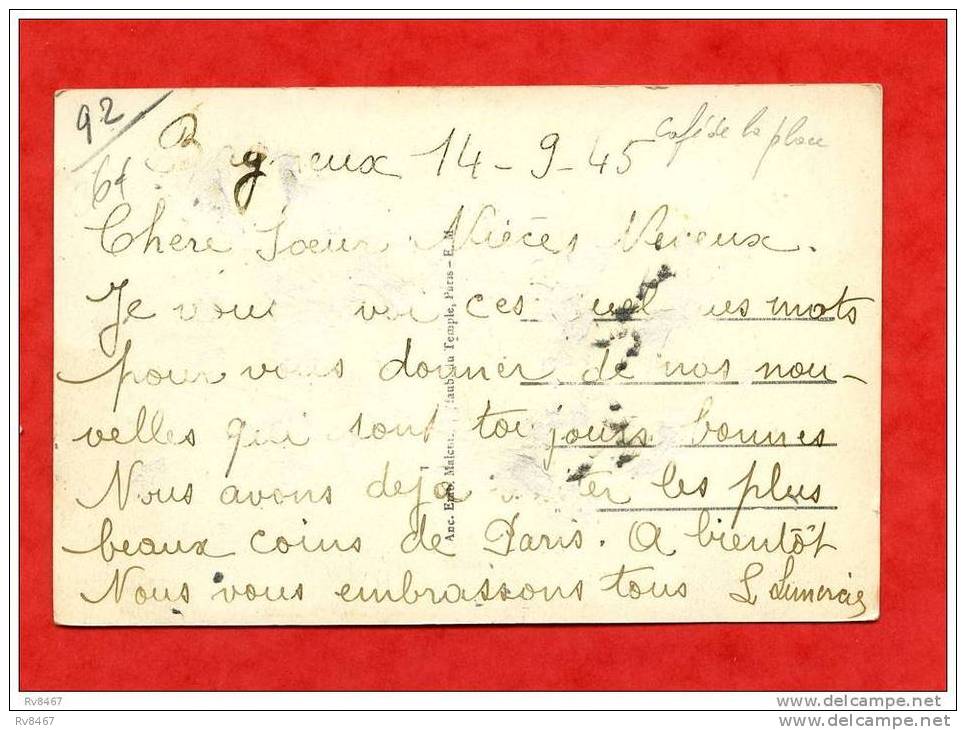 92
Bagneux 14-9-45 café de la place
Chère Soeur Nièces Neveux.
Je vous ces mots
pour vous donner de nos nou-
velles qui sont toujours bonnes
Nous avons deja les plus
beaux coins de Paris. A bientôt
Nous vous embrassons tous L
Anc. Etab. Temple, Paris - E. M.
Rv8467
Rv8467
www.delcampe.net
www.delcampe.net